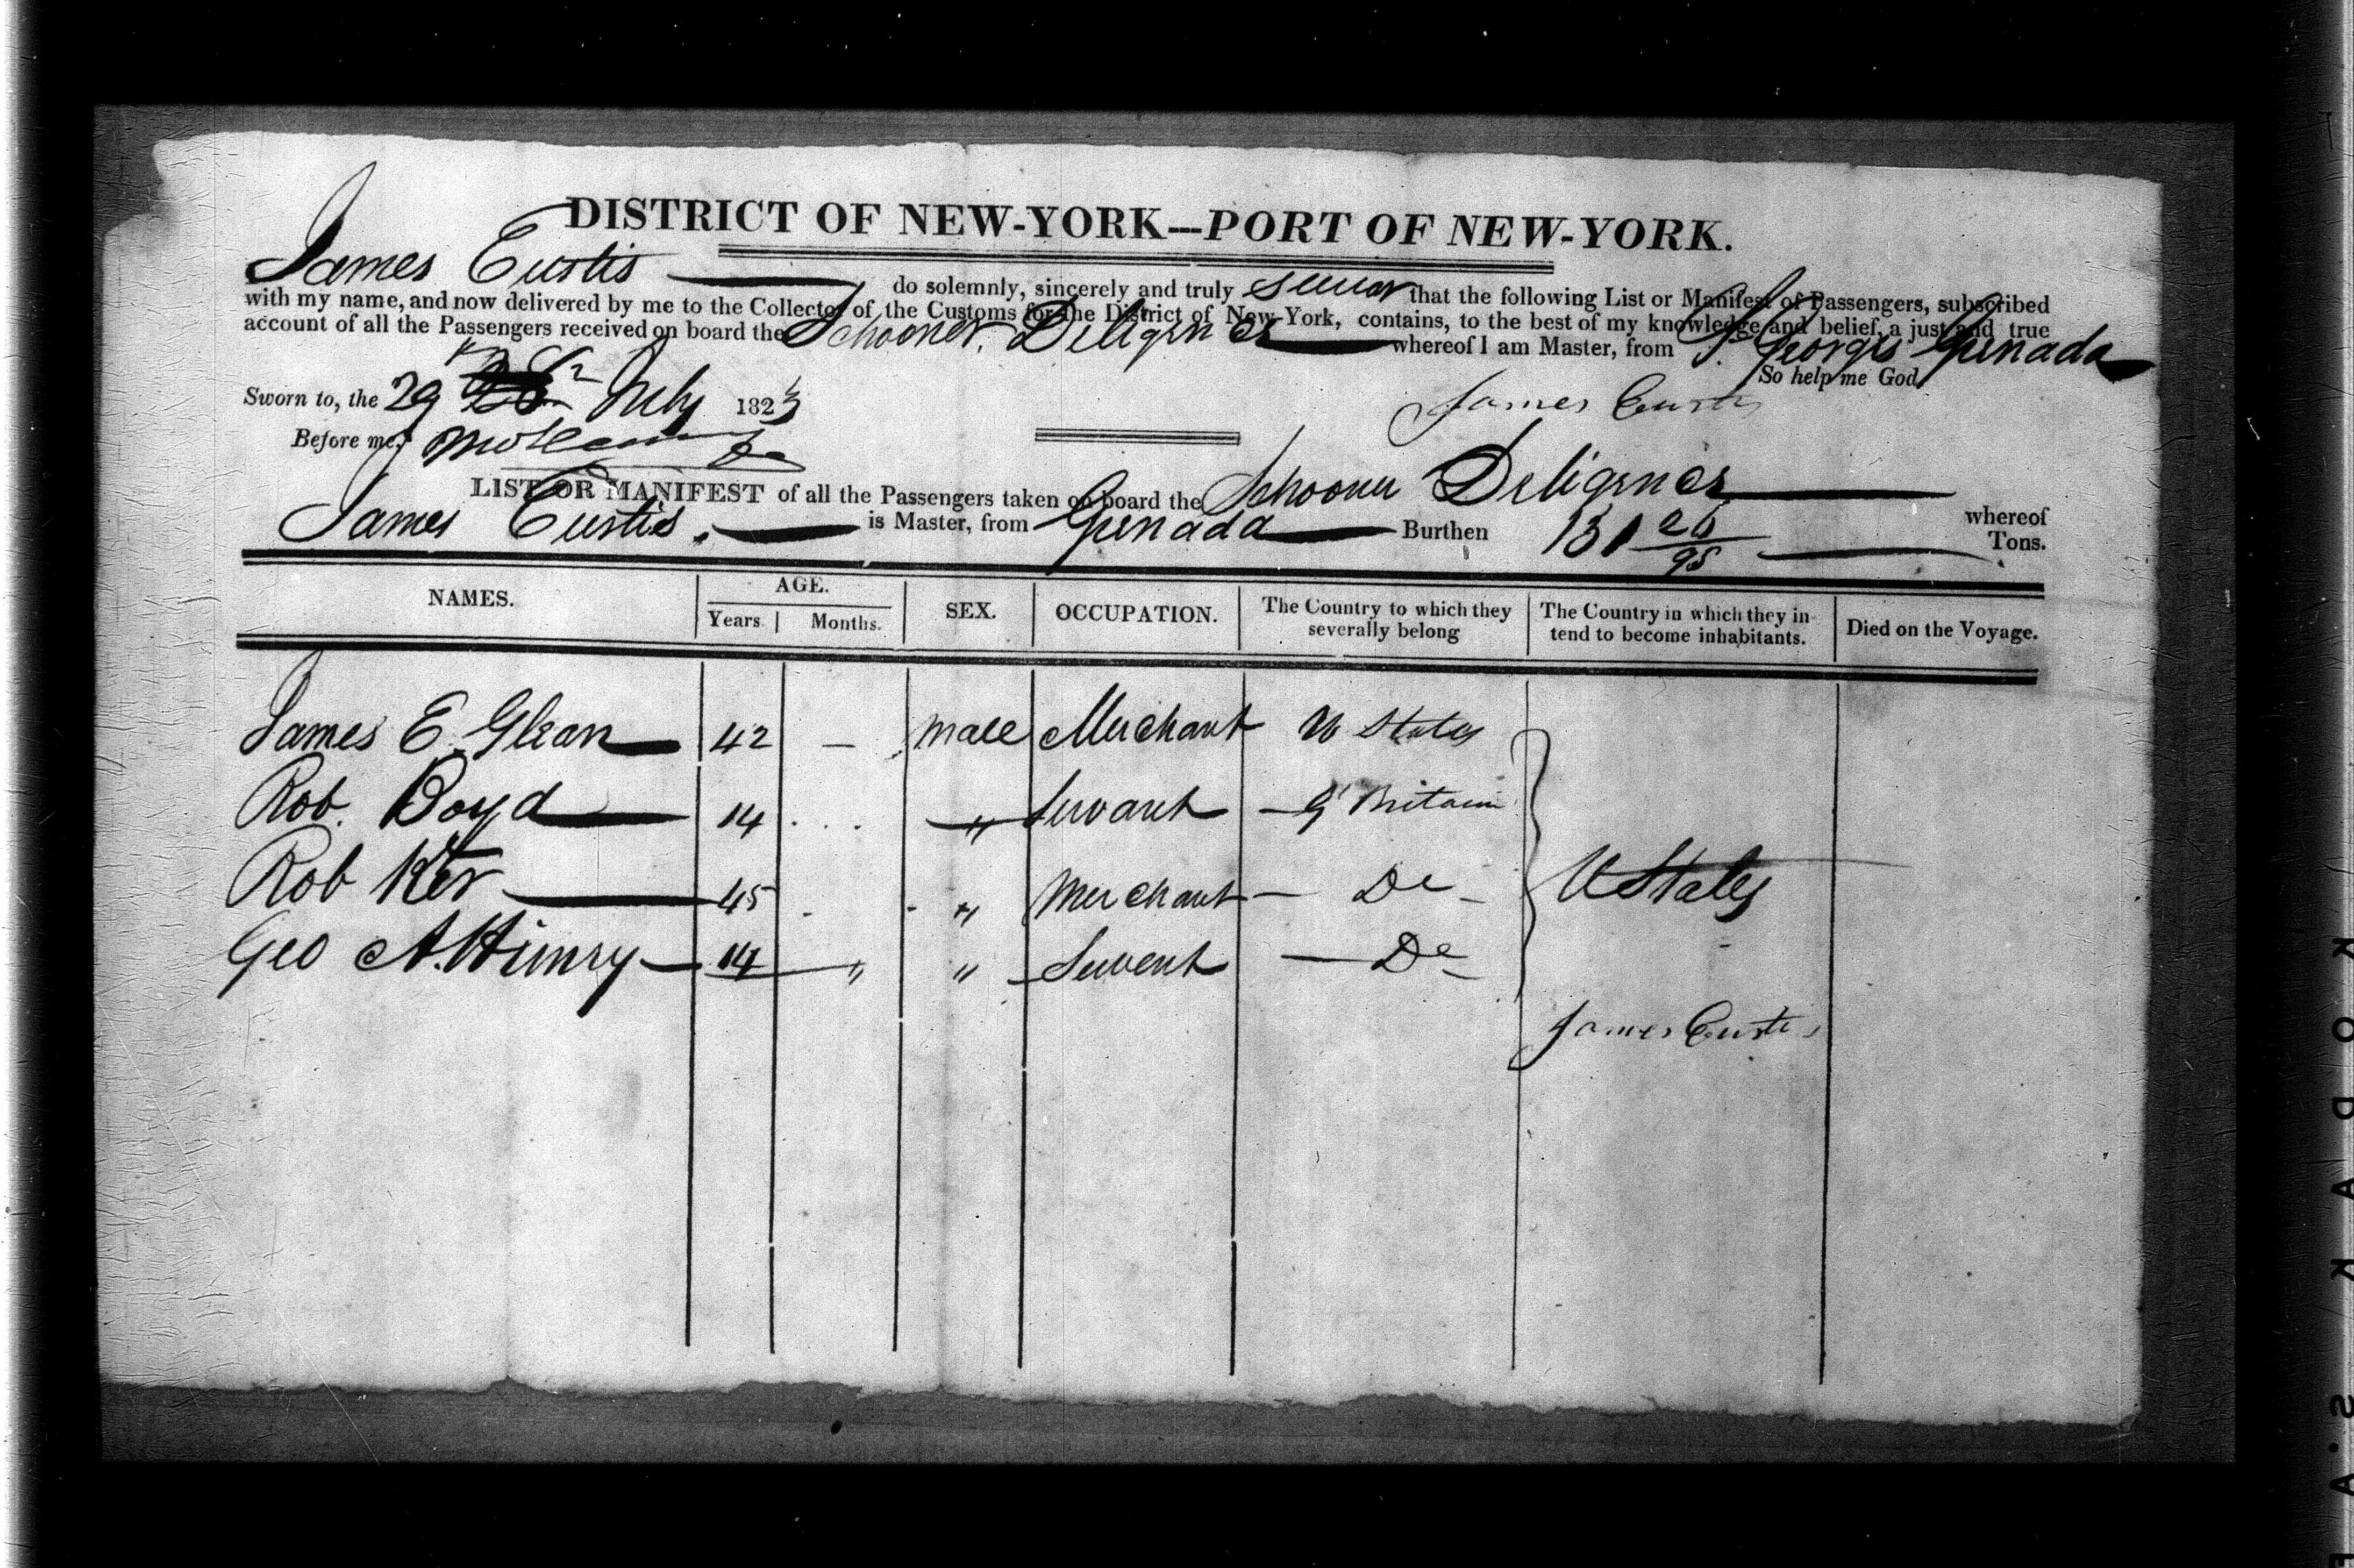 DISTRICT OF NEW-YORK---PORT OF NEW-YORK.
James Curtis do solemnly, sincerely and truly swear that the following List or Manifest of Passengers, subscribed
with my name, and now delivered by me to the Collector of the Customs for the District of New-York, contains, to the best of my knowledge and belief, a just and true
account of all the Passengers received on board the Schooner Deligence whereof I am Master, from St. Georges Grenada
So help me God,
Sworn to, the 29 July 1823 James Curtis
Before me,
LIST OR MANIFEST of all the Passengers taken on board the Schooner Deligence whereof
James Curtis. is Master, from Grenada Burthen 131 26/95 Tons.
NAMES. AGE. Years Months. SEX. OCCUPATION. The Country to which they severally belong The Country in which they intend to become inhabitants. Died on the Voyage.
James E. Glean 42 – male Merchant U States
Rob. Boyd 14 " Servant G Britain
Rob Ker 45 " Merchant Do
U States
Geo 14 " " Servent Do
James Curtis
KODAK
S.A